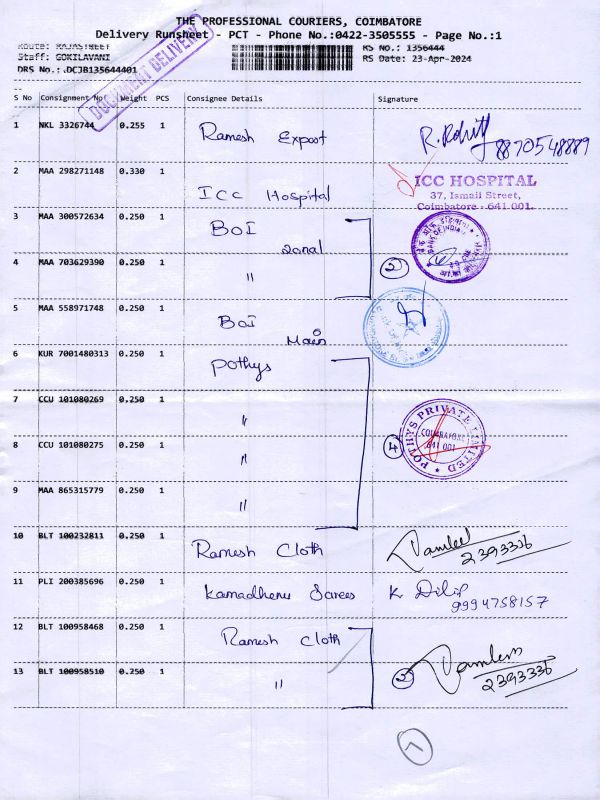 THE PROFESSIONAL COURIERS, COIMBATORE
Delivery Runsheet - PCT - Phone No.:0422-3505555 - Page No.:1
Route: RAJASTREET
RS No.: 1356444
Staff: GOKILAVANI
RS Date: 23-Apr-2024
DRS No.: DCJB135644401
DOCUMENT DELIVERY
S No Consignment No Weight PCS Consignee Details Signature
1 NKL 3326744 0.255 1 Ramesh Export R. Rohitt 8870548889
2 MAA 298271148 0.330 1 ICC Hospital
ICC HOSPITAL
37, Ismail Street,
Coimbatore - 641 001.
3 MAA 300572634 0.250 1 BOI
zonal
4 MAA 703629390 0.250 1 " 2
5 MAA 558971748 0.250 1 BOI
Main
6 KUR 7001480313 0.250 1 Pothys
7 CCU 101080269 0.250 1 "
POTHYS PRIVATE LIMITED
COIMBATORE
641 001
8 CCU 101080275 0.250 1 " 4
9 MAA 865315779 0.250 1 "
10 BLT 100232811 0.250 1 Ramesh Cloth
2393336
11 PLI 200385696 0.250 1 Kamadhenu Sarees K Dilip
9994758157
12 BLT 100958468 0.250 1 Ramesh Cloth
13 BLT 100958510 0.250 1 " 2
2393336